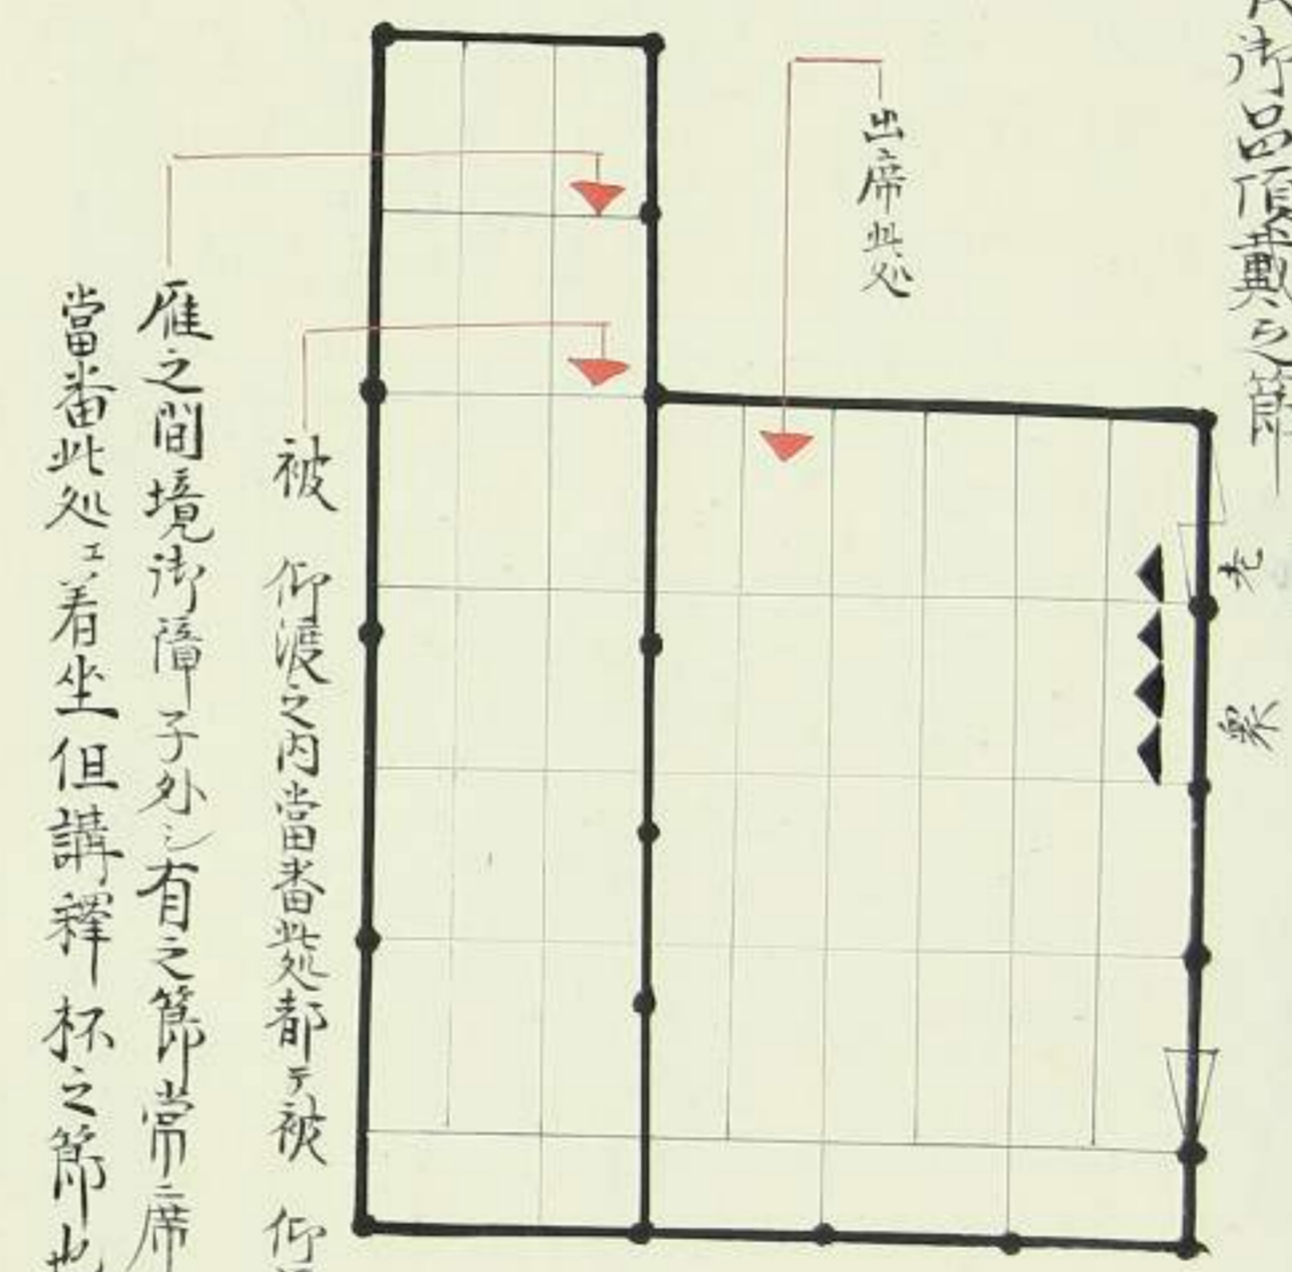 御邑頂戴之節
出席此処
老衆
被 仰渡之内當番此処都テ被 仰
雁之間境御障子外ニ有之節常ニ席
當番此処エ着坐但講釋杯之節也